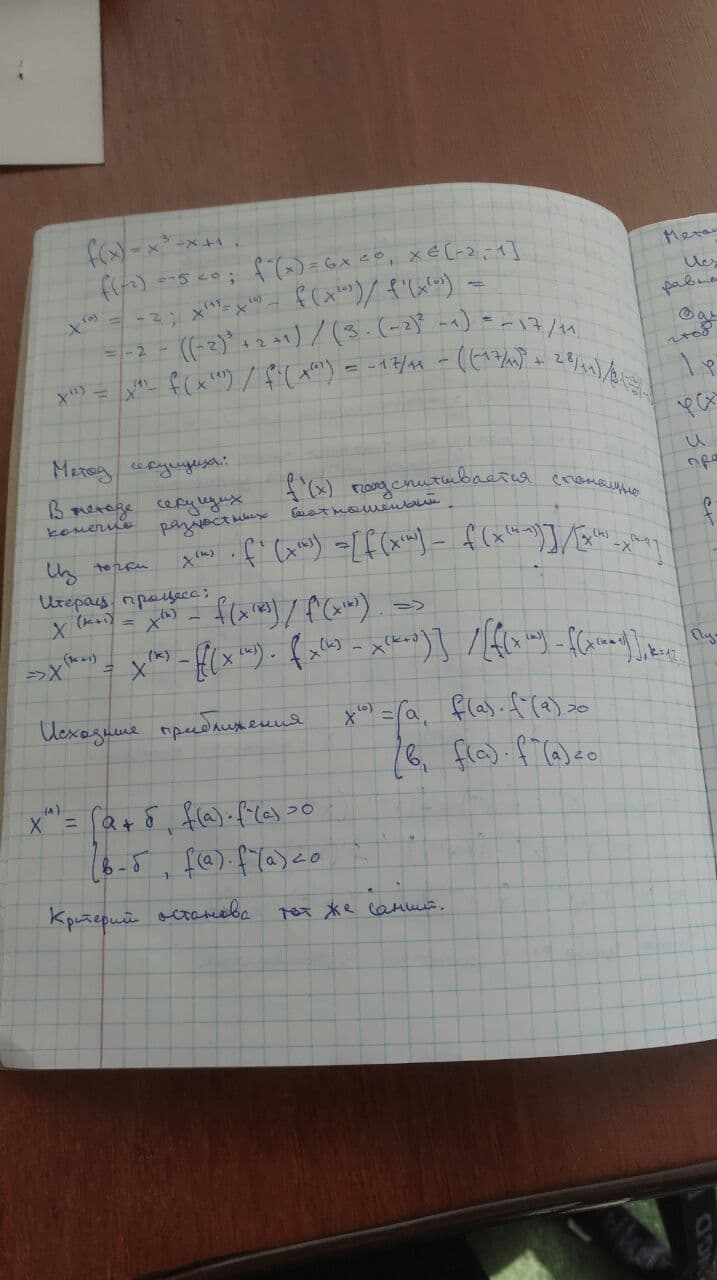 f(x) = x³ - x + 1.
f(-2) = -5 < 0; f"(x) = 6x < 0, x ∈ [-2, -1]
x⁽⁰⁾ = -2; x⁽¹⁾ = x⁽⁰⁾ - f(x⁽⁰⁾) / f'(x⁽⁰⁾) =
= -2 - ((-2)³ + 2 + 1) / (3 · (-2)² - 1) = -17/11
x⁽²⁾ = x⁽¹⁾ - f(x⁽¹⁾) / f'(x⁽¹⁾) = -17/11 - ((-17/11)³ + 28/11) /
Метод секущих:
В методе секущих f'(x) подсчитывается с помощью
конечно разностных соотношений.
Из точки x⁽ᵏ⁾ · f'(x⁽ᵏ⁾) = [f(x⁽ᵏ⁾] - f(x⁽ᵏ⁻¹⁾)] / [x⁽ᵏ⁾ - x⁽ᵏ⁻¹⁾]
Итерац. процесс:
x⁽ᵏ⁺¹⁾ = x⁽ᵏ⁾ - f(x⁽ᵏ⁾) / f'(x⁽ᵏ⁾) . =>
=> x⁽ᵏ⁺¹⁾ = x⁽ᵏ⁾ - [f(x⁽ᵏ⁾) · f x⁽ᵏ⁾ - x⁽ᵏ⁺¹⁾)] / [f(x⁽ᵏ⁾) - f(x⁽ᵏ⁻¹⁾)], k=1,2
Исходные приближения x⁽⁰⁾ = { a, f(a) · f"(a) > 0
{ b, f(a) · f"(a) < 0
x⁽¹⁾ = { a + б, f(a) · f"(a) > 0
{ b - б, f(a) · f"(a) < 0
Критерий останова тот же самый.
Метод
Исх
равно
φ(x)
И
f
Пу